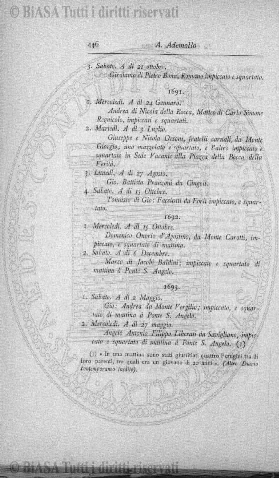 © BiASA Tutti i diritti riservati
446 A. Ademollo
3. Sabato, A di 21 ottobre.
Girolamo di Pietro Bona, Romano impiccato e squartato.
1691.
1. Mercoledì, A di 24 Gennaro.
Andrea di Nicola della Rocca, Matteo di Carlo Simone
Regnicolo, impiccati e squartati.
2. Martedì, A di 3 Luglio.
Giuseppe e Nicola fratelli carnali, da Monte
Giorgio, uno mazzolato e squartato, e l'altro impiccato e
squartato in Sede Vacante alla Piazza della Bocca della
Verità.
3. Lunedì, A di 27 Agosto.
Gio. Battista da Cingoli.
4. Sabato, A di 13 Ottobre.
Tomasso di Gio: da Forlì impiccato, e squar-
tato.
1692.
1. Mercoledì, A di 15 Ottobre.
Domenico Onorio d'Agostino, da Monte Carotti, im-
piccato, e squartato di mattina.
2. Sabato, A di 6 Decembre.
Marco di Jacobi Baldini; impiccato e squartato di
mattina à Ponte S. Angelo.
1693.
1. Sabato. A di 2 Maggio.
Gio. Andrea da Monte Vergilio; impiccato, e squar-
tato di mattina à Ponte S. Angelo.
2. Mercoledì. A di 27 maggio.
Angelo Antonio Filippo Liberati da Savigliano, impic-
cato e squartato di mattina à Ponte S. Angelo. (1)
(1) « In una mattina sono stati giustiziati quattro
loro parenti, tra quali era un giovane di 20 anni ». (Altro Diario
contemporaneo inedito).
© BiASA Tutti i diritti riservati